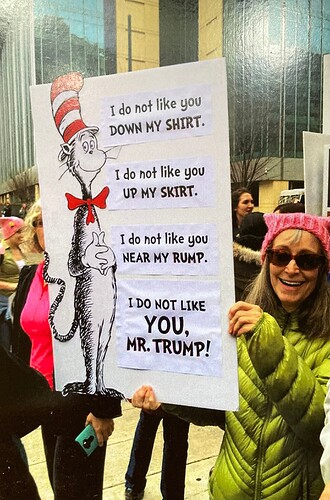 I do not like you
DOWN MY SHIRT.
I do not like you
UP MY SKIRT.
I do not like you
NEAR MY RUMP.
I DO NOT LIKE
YOU,
MR. TRUMP!